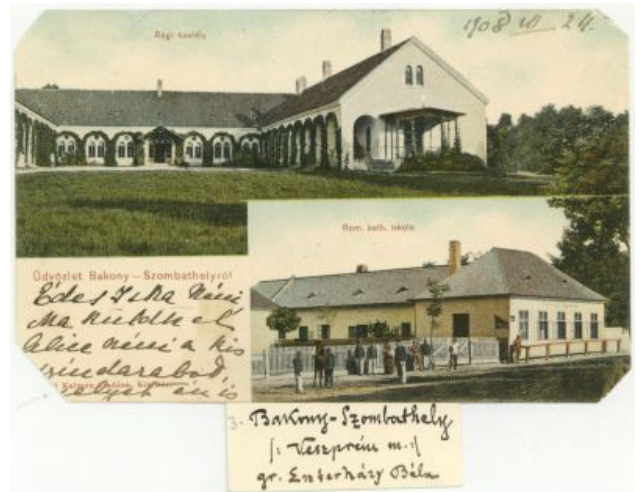 Régi kastély
1908 VII 24.
Rom. kath. iskola
Üdvözlet Bakony – Szombathelyről
Édes Iska Néni
Ma küldh el
Alice néni a kis
Kálmán
én is
3. Bakony-Szombathely
/: Veszprém m. :/
gr. Eszterházy Béla